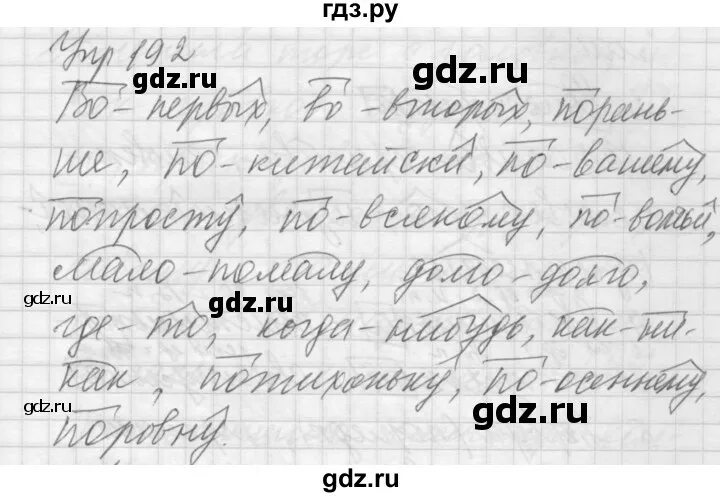 гдз.ру
Упр 192
Во-первых, во-вторых, порань-
ше, по-китайски, по-вашему,
gdz.ru gdz.ru
попросту, по-всякому, по-волчьи,
мало-помалу, долго-долго,
gdz.ru gdz.ru
где-то, когда-нибудь, как-ни-
как, потихоньку, по-осеннему,
gdz.ru gdz.ru
поровну.
gdz.ru